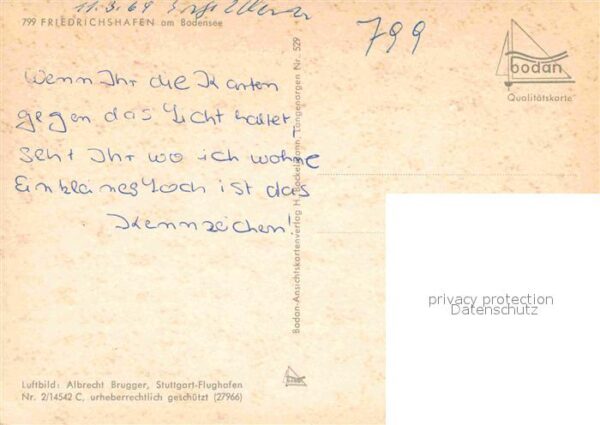 11.3.69
799 FRIEDRICHSHAFEN am Bodensee
799
bodan
Qualitätskarte
Wenn Ihr die Karten
gegen das Licht haltet,
seht Ihr wo ich wohne
Ein kleines Loch ist das
Kennzeichen!
Bodan-Ansichtskartenverlag H. Bockelmann, Langenargen Nr. 529
privacy protection
Datenschutz
bodan
Luftbild: Albrecht Brugger, Stuttgart-Flughafen
Nr. 2/14542 C, urheberrechtlich geschützt (27966)